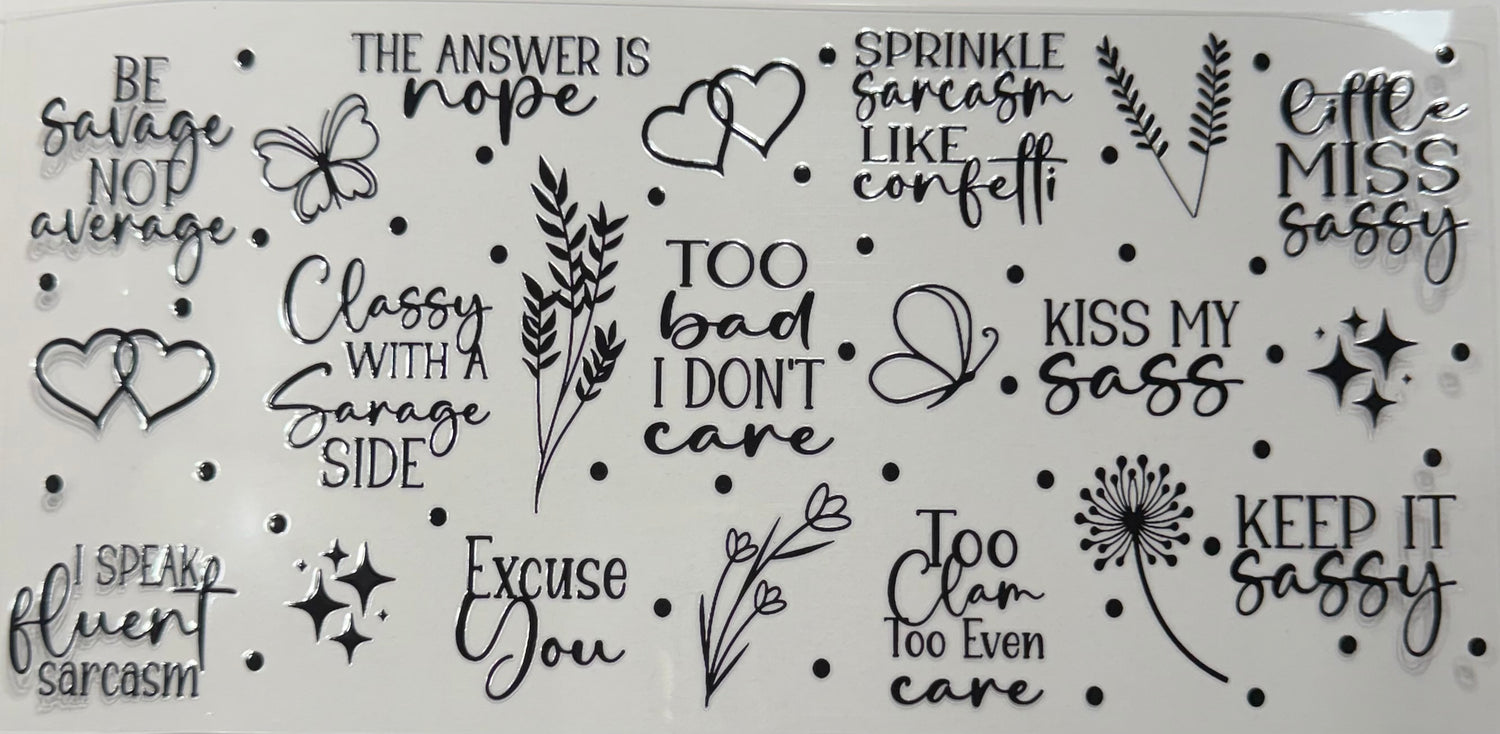 BE
savage
NOT
average
THE ANSWER IS
nope
SPRINKLE
sarcasm
LIKE
confetti
little
MISS
sassy
Classy
WITH A
Sarage
SIDE
TOO
bad
I DON'T
care
KISS MY
sass
I SPEAK
fluent
sarcasm
Excuse
You
Too
Clam
Too Even
care
KEEP IT
sassy